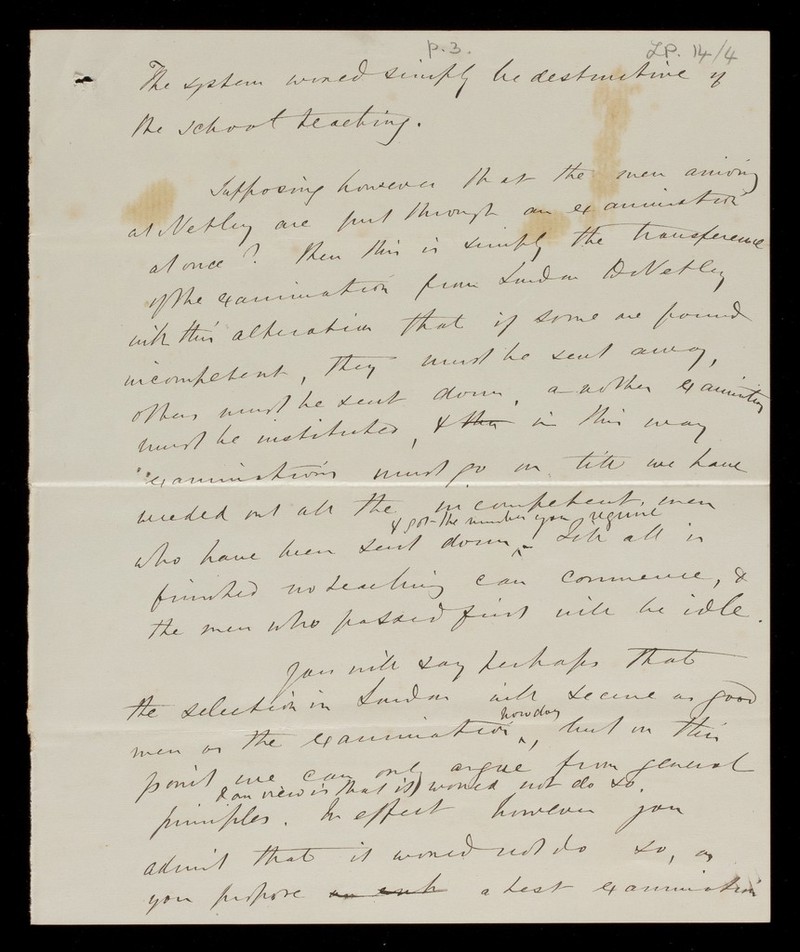 p.3.
LP. 14/4
The system would simply be destructive of
the school teaching.
Supposing however that the men arriving
at Netley are put through an examination
at once? Then this is simply the transference
of the examination from London to Netley
with this alteration that if some are found
incompetent, they must be sent away,
others must be sent down, another examination
must be instituted, & the in this way
examinations must go on till we have
weeded out all the incompetent men
& got the number you require
who have been sent down. Till all is
finished no teaching can commence, &
the men who passed first will be idle.
You will say perhaps that
the selection in London will secure as good
men as the examination, but on this
now does
point we can only argue from general
& our view is that it would not do so.
principles. In effect however you
admit that it would not do so, as
you propose a test examination